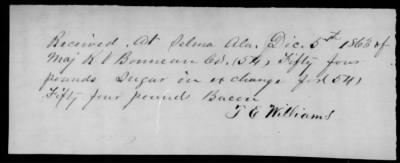 Received. At Selma Ala. Dec. 5th 1863 of
Maj R L Bonneau CS. (54) Fifty four
pounds Sugar in exchange for (54)
Fifty four pounds Bacon
T E Williams